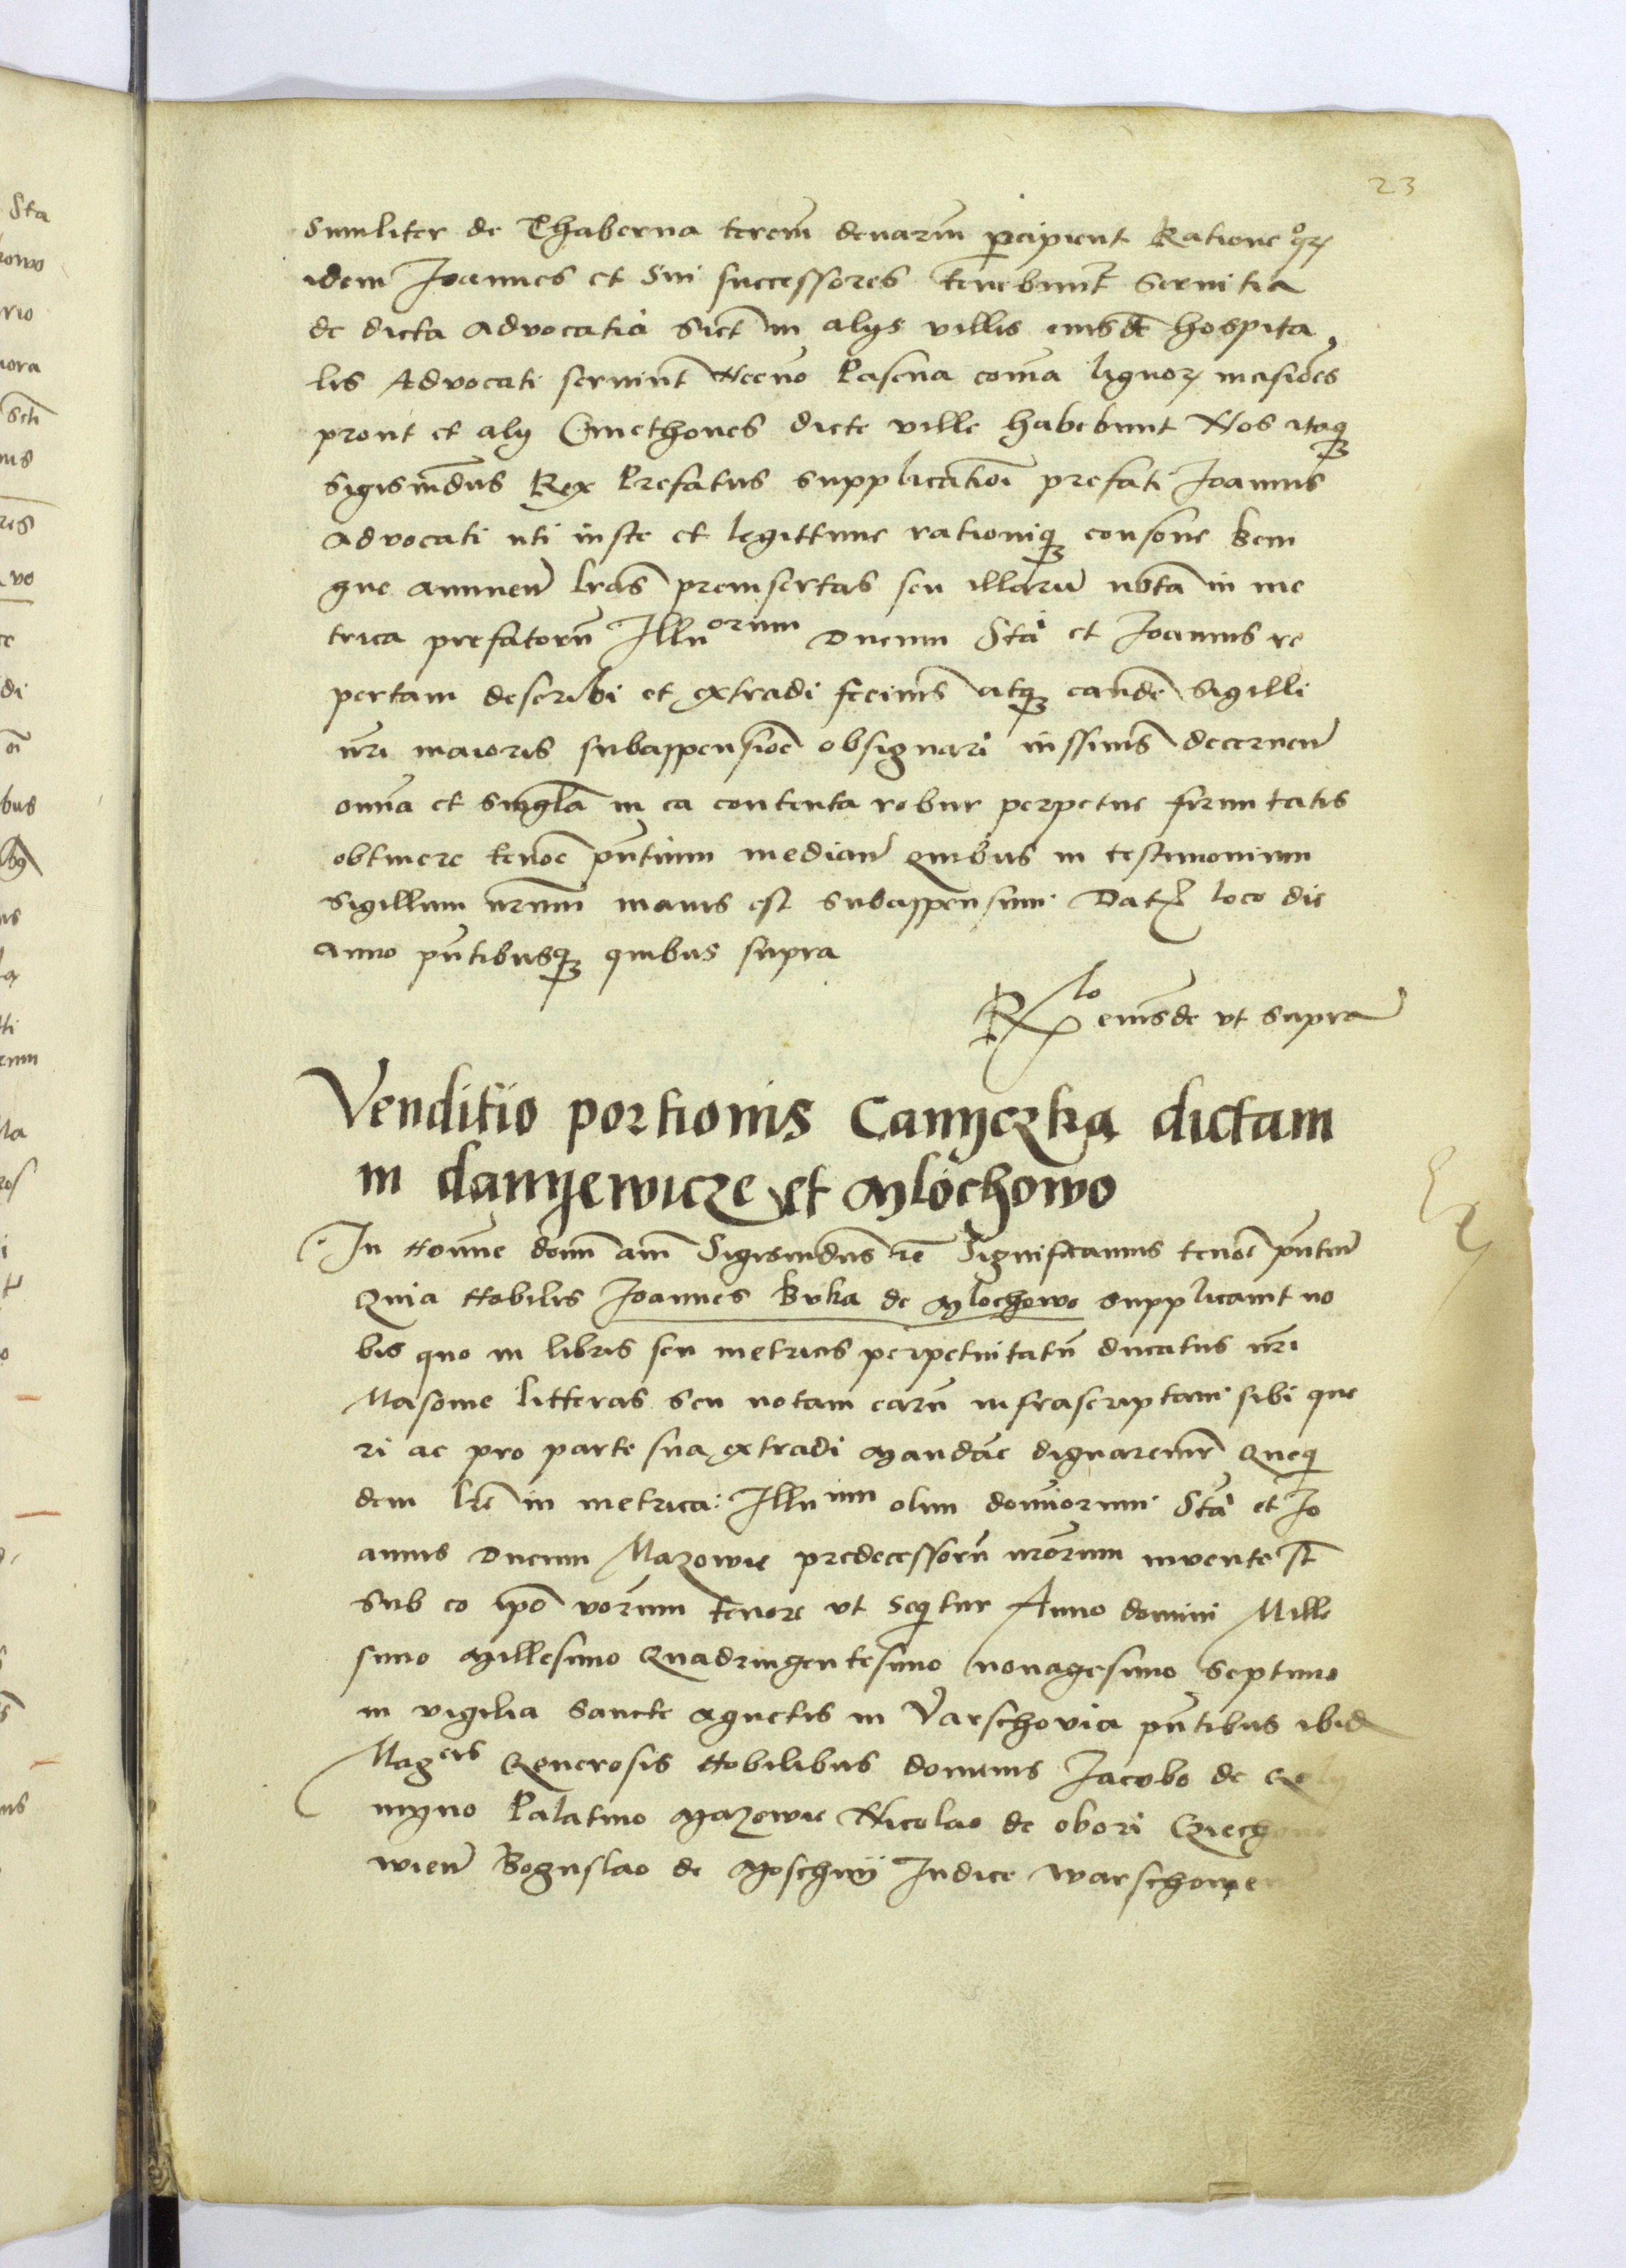 23
Similiter de Thaberna terciũ denariũ percipient Ratione quorum
idem Joannes et Sui successores tenebunt Servitia
de dicta advocatia sicut in alijs villis eiusdẽ hospita
lis Advocati serviunt Necnõ Pascua comũa lignorum incisiões
prout et alij Cmethones dicte ville habebunt Nos itaque
Sigismũdus Rex Prefatus supplicatiõi prefati Joannis
advocati uti iuste et legittime rationique consone beni
gne annuen̄ l̃ras preinsertas seu illarũ notã in me
trica prefatorũ Illu orum Ducum Sta et Joannis re
pertam describi et extradi fecim̃s atque eandẽ Sigilli
nr̃i maioris subappensiõe obsignari iussim̃s decernen̄
omĩa et singl̃a in ea contenta robur perpetue firmitatis
obtinere tenoẽ pñtium median̄ quibus in testimonium
Sigillum nr̃um maius est subappensum Dat̃ loco die
anno pñtibusque quibus supra
R̃lo eiusdẽ ut supra
Venditio portionis Canyczka dictam
in danyewicze et Mlochowo
In Nomĩe domĩ amẽ Sigismũdus etc̃ Significamus tenoẽ pñtiũ
Quia Nobilis Joannes Buka de Mlochowo supplicavit no
bis quo in libris seu metricis perpetuitatũ ducatus nr̃i
Masovie litteras seu notam earũ infrascriptam sibi que
ri ac pro parte sua extradi Mandãe dignarem̃r Queq̃
dem lr̃e in metrica Illu ium olim domĩorum Sta et Jo
annis Ducum Mazowie predecessorũ nr̃orum invente sũt
sub eo ip̃o verõrum tenore ut sequitur Anno domini Mille
simo Millesimo Quadringentesimo nonagesimo Septimo
in vigilia Sancte Agnetis in Varschovia pñtibus ibidẽ
Mag cis Generosis Nobilibus dominis Jacobo de
myno Palatino Mazowie Nicolao de obori
wien̄ Boguslao de Moschnÿ Judice